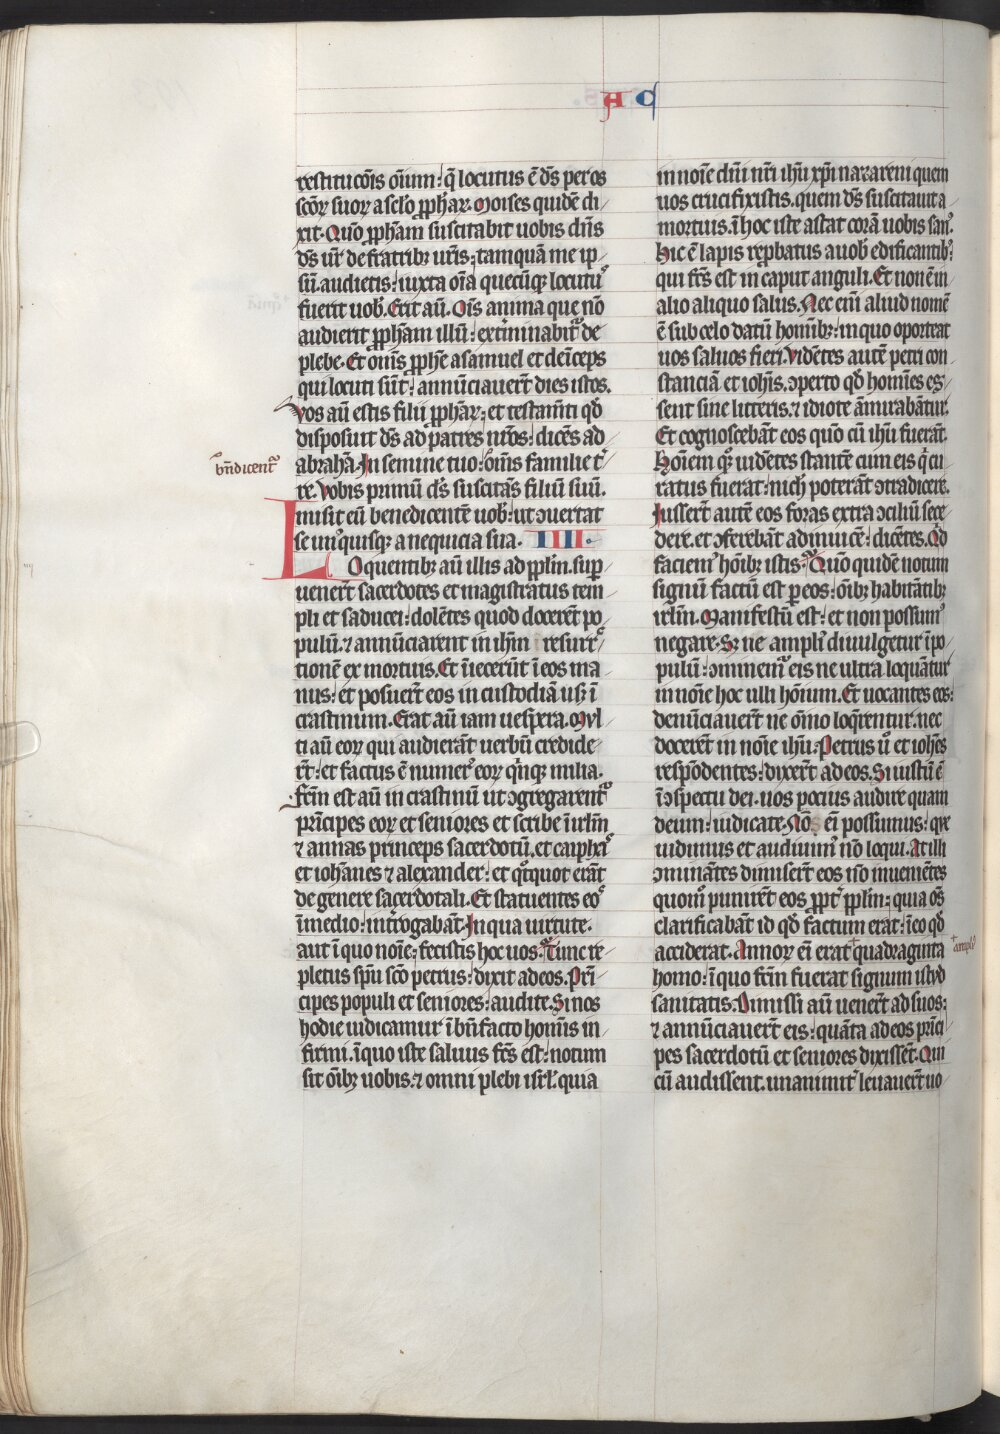 A C
restitucōis oīum: q̄ locutus ē dn̄s per os
sc̄oꝝ suoꝝ a sc̄lo ꝓphaꝝ. Moises quidē di
xit. Quō ꝓphām suscitabit uobis dn̄s
ds̄ ur̄ de fratribꝰ uris; tamquā me ip
sū. audietis: iuxta oīa quecūqꝫ locutuꝰ
fuerit uob̄. Erit aū. Oīs anima que nō
audierit ꝓphām illū: extīnabit̄ de
plebe. Et oīns ꝓphe a samuel et deīceps
qui locuti sūt: annūciauer̄t dies istos.
Vos aū estis filii ꝓphaꝝ: et testam̄ti qd̄
disposuit ds̄ ad patres nr̄os: dicēs ad
abrahā. In semine tuo: om̄s familie t̄
re. Vobis primū ds̄ suscitās filiū suū.
misit eū benedicentē uob̄: ut ↄuertat
se unꝰquisqꝫ a nequicia sua. IIII.
Loquentibꝰ aū illis ad ppl̄m. sup
uener̄t sacerdotes et magistratus tem
pli et saducei: dolētes quod docerēt po
pulū. ⁊ annūciarent in ih̄m resurr̄
tionē ex mortuis. Et īiecerūt ī eos ma
nus: et posuer̄t eos in custodiā usqꝫ ī
crastinum. Erat aū iam uespera. Mvl
ti aū eoꝝ qui audierāt uerbū credide
rt̄: et factus ē numerꝰ eoꝝ q̄nqꝫ milia.
Fc̄m est aū in crastinū ut ↄgregarent̄
prīcipes eoꝝ et seniores et scribe ī irl̄m
⁊ annas princeps sacerdotū. et caiphaꝰ
et ioh̄anes ⁊ alexander: et qt̄quot erāt
de genere sacerdotali. Et statuentes eoꝰ
ī medio: int̄rogabāt. In qua uirtute.
aut ī quo noīe: fecistis hoc uos. Tunc re
pletus spū sc̄o petrus: dixit ad eos. Prī
cipes populi et seniores: audite. Si nos
hodie iudicamur ī bn̄facto homīs in
firmi. ī quo iste saluus fc̄s est: notum
sit oībꝰ uobis. ⁊ omni plebi isrl̄. quia
bn̄dicent̄
in noīe dn̄i nr̄i ih̄u xp̄i nazareni quem
uos crucifixistis. quem ds̄ suscitauit a
mortuis. ī hoc iste astat corā uobis sanꝰ.
Hic ē lapis reprobatus a uob̄ edificantibꝰ:
qui fc̄s est in caput anguli. Et non ē in
alio aliquo salus. Nec eīn aliud nomē
ē sub celo datū homībꝰ: in quo oporteat
uos saluos fieri. Videntes autē petri con
stanciā et ioh̄is. ↄperto qd̄ homīes es
sent sine litteris. ⁊ idiote āmirabātur.
Et cognoscebāt eos quō cū ih̄u fuerāt.
Hoīem qꝫ uidētes stantē cum eis q̄ cu
ratus fuerat: nich̄ poterāt ↄtradicere.
Iusser̄t autē eos foras extra ↄciliū sece
dere. et ↄferebāt adinuicē: dicētes. Qd̄
faciemꝰ hoībꝰ istis. Quō quidē notum
signū factū est ꝑ eos: oībꝰ habitātibꝰ
irl̄m. Manifestū est: et non possumꝰ
negare. Sꝫ ne ampliꝰ diuulgetur ī po
pulū: ↄminemꝰ eis ne ultra loquātur
in noīe hoc ulli hoīnum. Et uocantes eos:
denūciauer̄t ne oīno loq̄rentur. nec
docerēt in noīe ih̄u. Petrus ū et ioh̄es
respōdentes: dixer̄t ad eos. Si iustū ē
ī ↄspectu dei. uos pocius audire quam
deum: iudicate. Nō eī possumus: que
uidimus et audiuimꝰ nō loqui. At illi
ↄminātes dimiser̄t eos. nō inuenētes
quomō punirēt eos ꝓpt̄ ppl̄m: quia oēs
clarificabāt id qd̄ factum erat: ī eo qd̄
acciderat. Annoꝝ eī erat quadraginta
homo: ī quo fc̄m fuerat signum istvd
sanitatis. Dimissi aū uener̄t ad suos:
⁊ annūciauer̄t eis: quāta ad eos prīci
pes sacerdotū et seniores dixissēt. Qui
cū audissent. unanimit̄ leuauer̄t uo
ampliꝰ